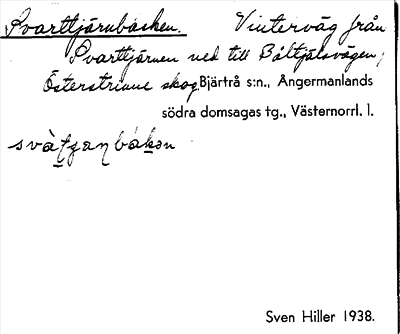 Svarttjärnbacken. Vinterväg från
Svarttjärnen ned till Båltjälsvägen,
Österstrinne skog Bjärtrå s:n., Ångermanlands
södra domsagas tg., Västernorrl. l.
Sven Hiller 1938.